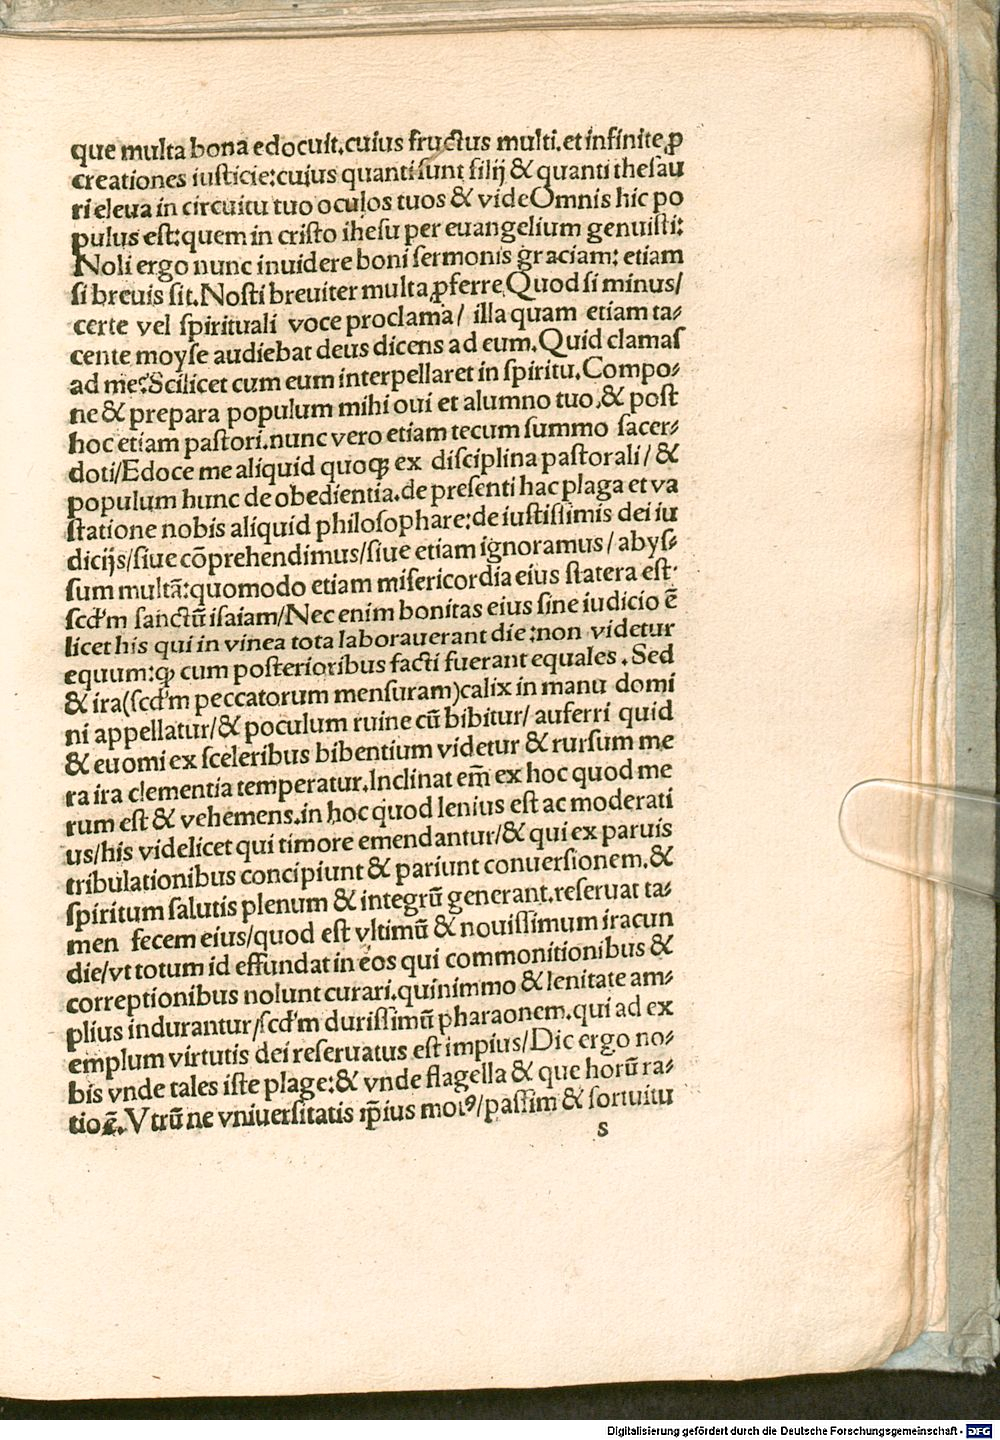 que multa bona edocuit.cuius fructus multi.et infinite ꝓ
creationes iusticie:cuius quanti sunt filij & quanti thesau
ri eleua in circuitu tuo oculos tuos & vide Omnis hic po
pulus est:quem in cristo ihesu per euangelium genuisti:
Noli ergo nunc inuidere boni sermonis graciam: etiam
si breuis sit.Nosti breuiter multa ꝓferre Quod si minus/
certe vel spirituali voce proclama/ illa quam etiam ta⸗
cente moyse audiebat deus dicens ad eum.Quid clamas
ad me?Scilicet cum eum interpellaret in spiritu.Compo⸗
ne & prepara populum mihi oui et alumno tuo.& post
hoc etiam pastori.nunc vero etiam tecum summo sacer⸗
doti/Edoce me aliquid quoqꝫ ex disciplina pastorali/ &
populum hunc de obedientia.de presenti hac plaga et va
statione nobis aliquid philosophare:de iustissimis dei iu
dicijs/siue cõprehendimus/siue etiam ignoramus/ abys⸗
sum multã:quomodo etiam misericordia eius statera est·
scd'm sanctũ isaiam/Nec enim bonitas eius sine iudicio ẽ
licet his qui in vinea tota laborauerant die:non videtur
equum:qꝫ cum posterioribus facti fuerant equales . Sed
& ira(scd'm peccatorum mensuram)calix in manu domi
ni appellatur/& poculum ruine cũ bibitur/ auferri quid
& euomi ex sceleribus bibentium videtur & rursum me
ra ira clementia temperatur.Inclinat em̃ ex hoc quod me
rum est & vehemens.in hoc quod lenius est ac moderati
us/his videlicet qui timore emendantur/& qui ex paruis
tribulationibus concipiunt & pariunt conuersionem.&
spiritum salutis plenum & integrũ generant.reseruat ta⸗
men fecem eius/quod est vltimũ & nouissimum iracun
die/vt totum id effundat in eos qui commonitionibus &
correptionibus nolunt curari.quinimmo & lenitate am⸗
plius indurantur/scd'm durissimũ pharaonem.qui ad ex
emplum virtutis dei reseruatus est impius/Dic ergo no⸗
bis vnde tales iste plage:& vnde flagella & que horũ ra⸗
tio ẽ.Vtrũ ne vniuersitatis ip̃ius motꝰ/passim & fortuitu
s
Digitalisierung gefördert durch die Deutsche Forschungsgemeinschaft - DFG